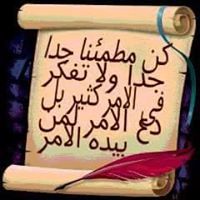 كن مطمئنا جدا
جدا ولا تفكر
في الامر كثير بل
دع الامر لمن
بيده الامر